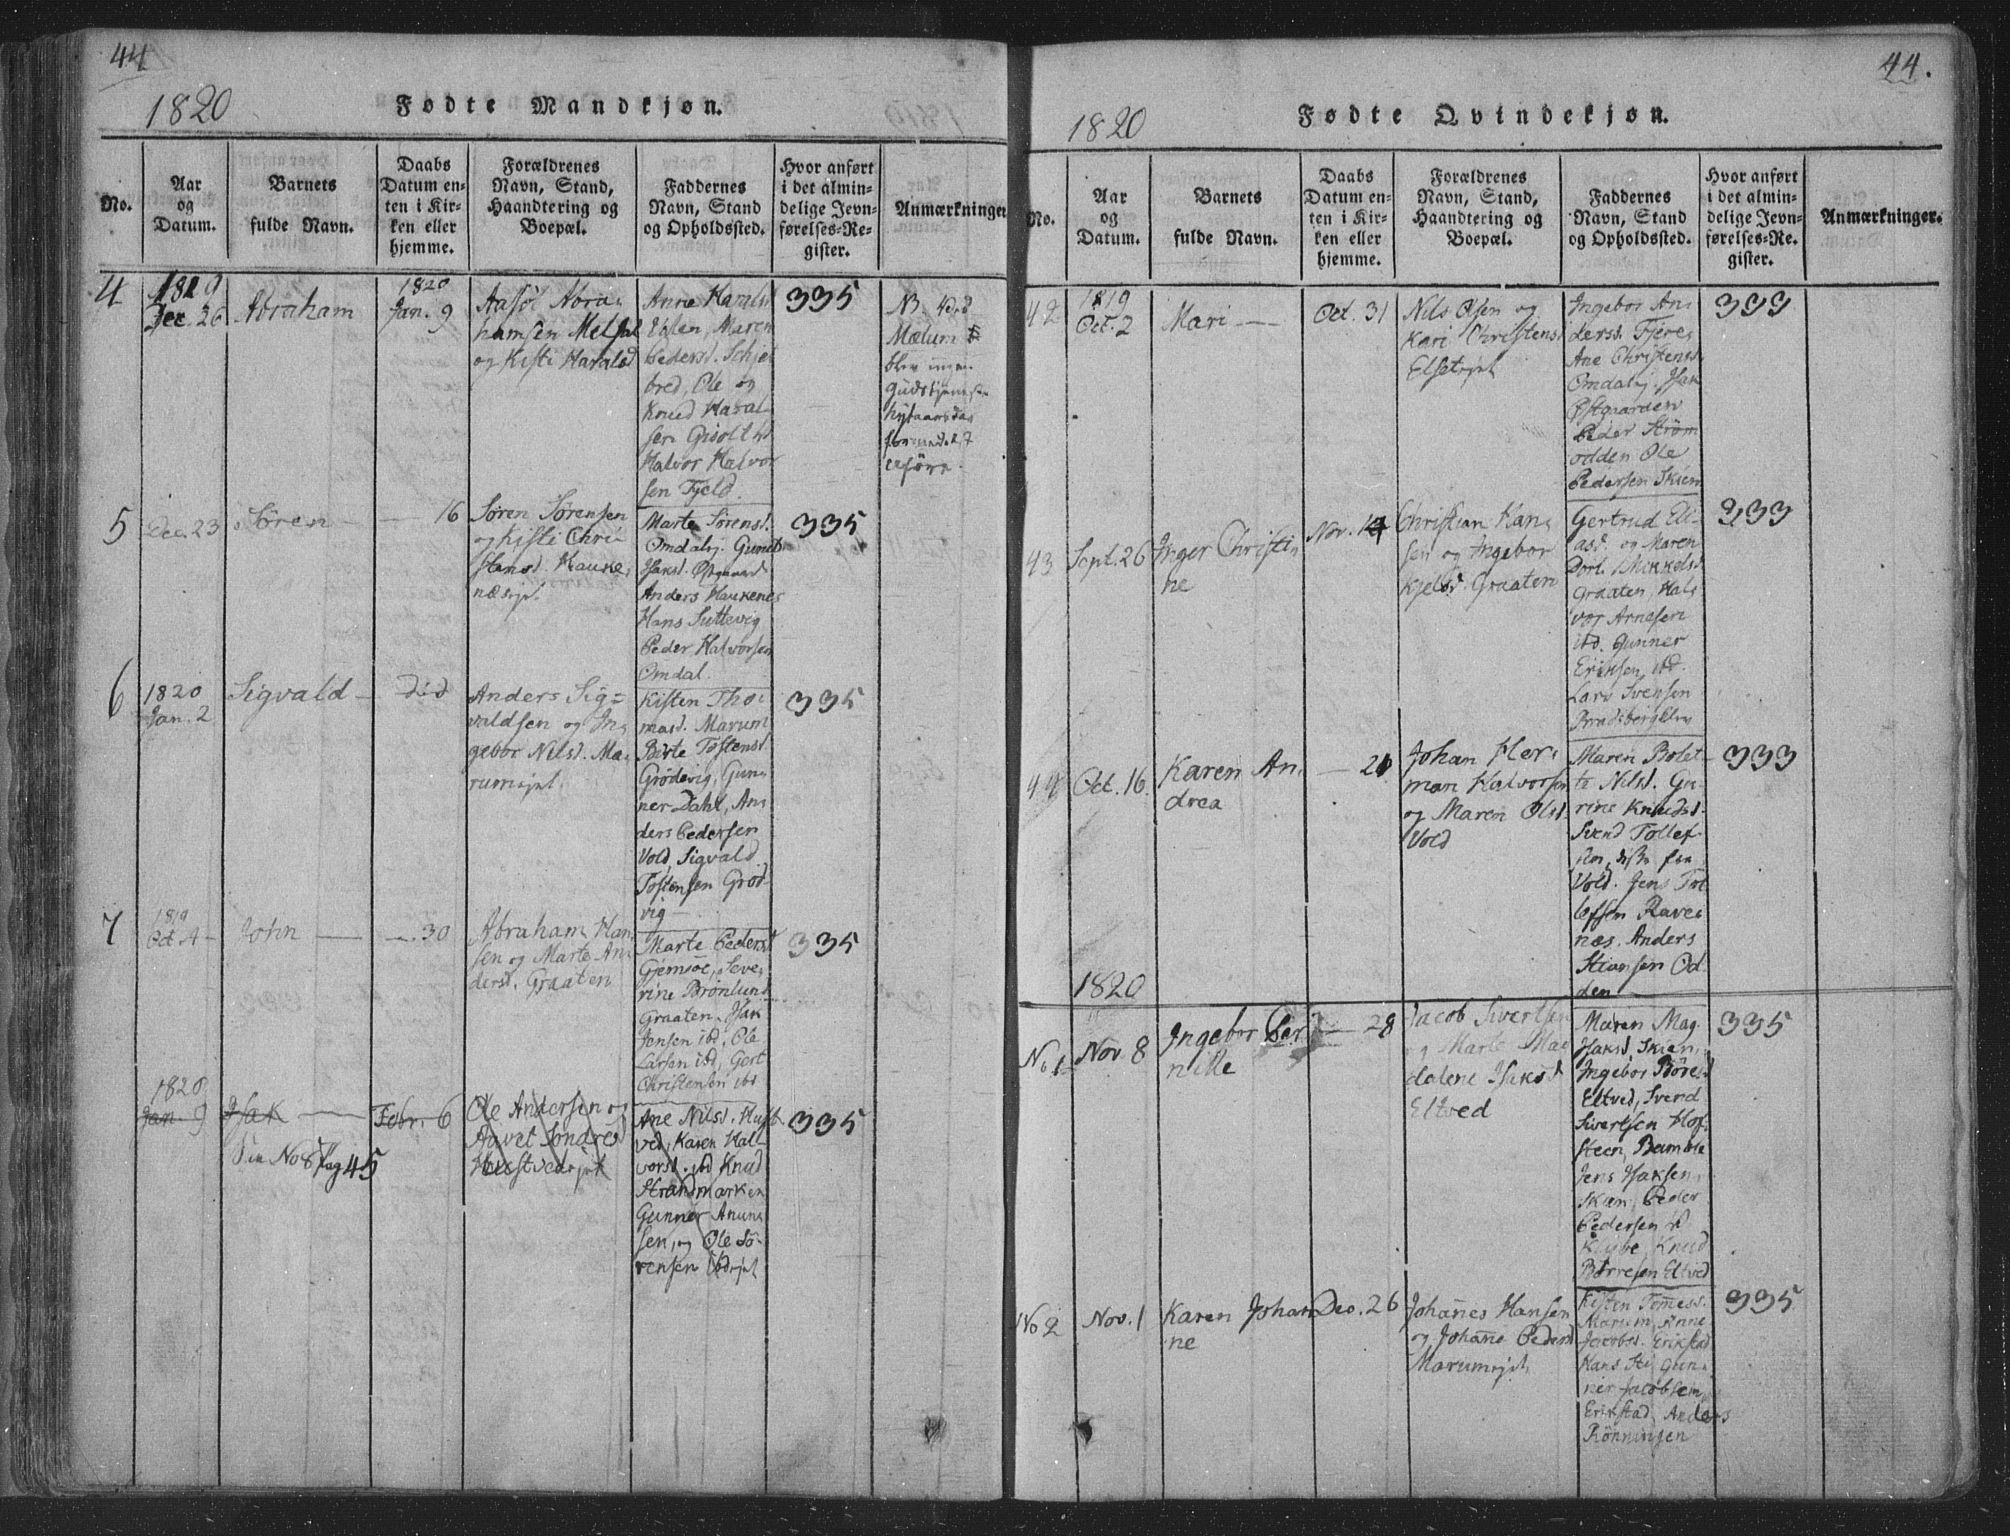 44
1820
Fødte Mandkjøn.
No.
Aar
og
Datum.
Barnets
fulde Navn.
Daabs
Datum en-
ten i Kir-
ken eller
hjemme.
Forældrenes
Navn, Stand,
Haandtering og
Boepæl.
Faddernes
Navn, Stand
og Opholdssted.
Hvor anført
i det almin-
delige Jevn-
førelses-Re-
gister.
Anmærkninger
4
1819
Dec. 26
Abraham
1820
Jan. 9
Aasol Abra-
hamsen
og Kisti Haralsd
Anne Haralsd
Eblen, Maren
Pedersd.
bred, Ole og
Knud Haral-
sen
Halvor Halvor
sen Fjeld.
335
NB.
Mælum
blev ingen
5
Dec. 23
Søren
16
Søren Sørensen
og Kisti Chri
stensd. Hauke-
næsejet
Marte Sørensd.
Omdalej. Gunib
Isaksd. Østgaard
Anders Haukenes
Hans Suttevig
Peder Halvorsen
Omdal.
335
6
1820
Jan. 2
Sigvald
Did
Anders Sig=
valdsen og In-
gebor Nilsd. Ma-
rumejet.
Kisten Tho-
masd. Marum
Birte Tostensd.
Grødevig, Gun-
ner Dahl, An-
ders Pedersen
Vold, Sigvald
Tostensen Grød-
vig
335
7
1819
Oct. 4
John
30
Abraham Han-
sen og Marte An-
dersd. Graaten
Marte Pedersd
Gjemsøe, Seve-
rine Brønlund
Graaten, Isak
Jensen ibd, Ole
Larsen ibd, Gert
Christensen ibd
335
1820
Jan. 9
Isak
Febr. 6
No 8 Pag 45
Ole Andersen og
Aavet Sondresd
Hustvedejet
Ane Nilsd. Hust-
ved, Karen Hal-
vorsd. ibd Knud
Strandmarken
Gunner Anun-
sen, og Ole Sø-
rensen ibdejet
335
44.
1820
Fødte Qvindekjøn.
No.
Aar
og
Datum.
Barnets
fulde Navn.
Daabs
Datum en-
ten i Kir-
ken eller
hjemme.
Forældrenes
Navn, Stand,
Haandtering og
Boepæl.
Faddernes
Navn, Stand
og Opholdssted.
Hvor anført
i det almin-
delige Jevn-
førelses-Re-
gister.
Anmærkninger.
42
1819
Oct. 2
Mari
Oct. 31
Nils Olsen og
Kari Christensd
Elsetejet
Ingebor An-
dersd. Fjere-
Ane Christensd
Omdalej. Isak
Østgaarden
Peder Strøm
odden Ole
Pedersen Skien
333
43
Sept. 26
Inger Christi
ne
Nov. 14
Christian Han-
sen og Ingebor
Kjelsd. Graaten
Gertrud Eli-
asd. og Maren
Dort. Mikkelsd
Graaten, Hal-
vor Arnesen
ibd. Gunner
Eriksen ibd.
Lars Svensen
333
44
Oct. 16
Karen An-
drea
21
Johan Her-
man Halvorsen
og Maren Olsd.
Vold
Maren Bolet-
te Nilsd. Gu-
rine Knudsd
Svend Tollef-
sen, disse fra
Vold. Jens Tol
lefsen Rave-
næs. Anders
Stiansen Od-
den
333
1820
No 1
Nov. 8
Ingebor Per-
nille
28
Jacob Sivertsen
og Marte Mag
dalene Isaksd
Eltved
Maren Mag.
Isaksd. Skien,
Ingebor Børesd
Eltved, Svend
Sivertsen Hof-
steen, Bamble
Jens Isaksen,
Skien, Peder
Pedersen
Knud
Børresen Eltved
335
No 2
Nov. 1
Karen Johan
ne
Dec. 26
Johañes Hansen
og Johañe Pedersd
Marumejet
Kisten Tomess.
Marum, Anne
Jacobsd. Erikstad
Hans Sti, Gun-
ner Jacobsen
Erikstad, Anders
Rønningen
335